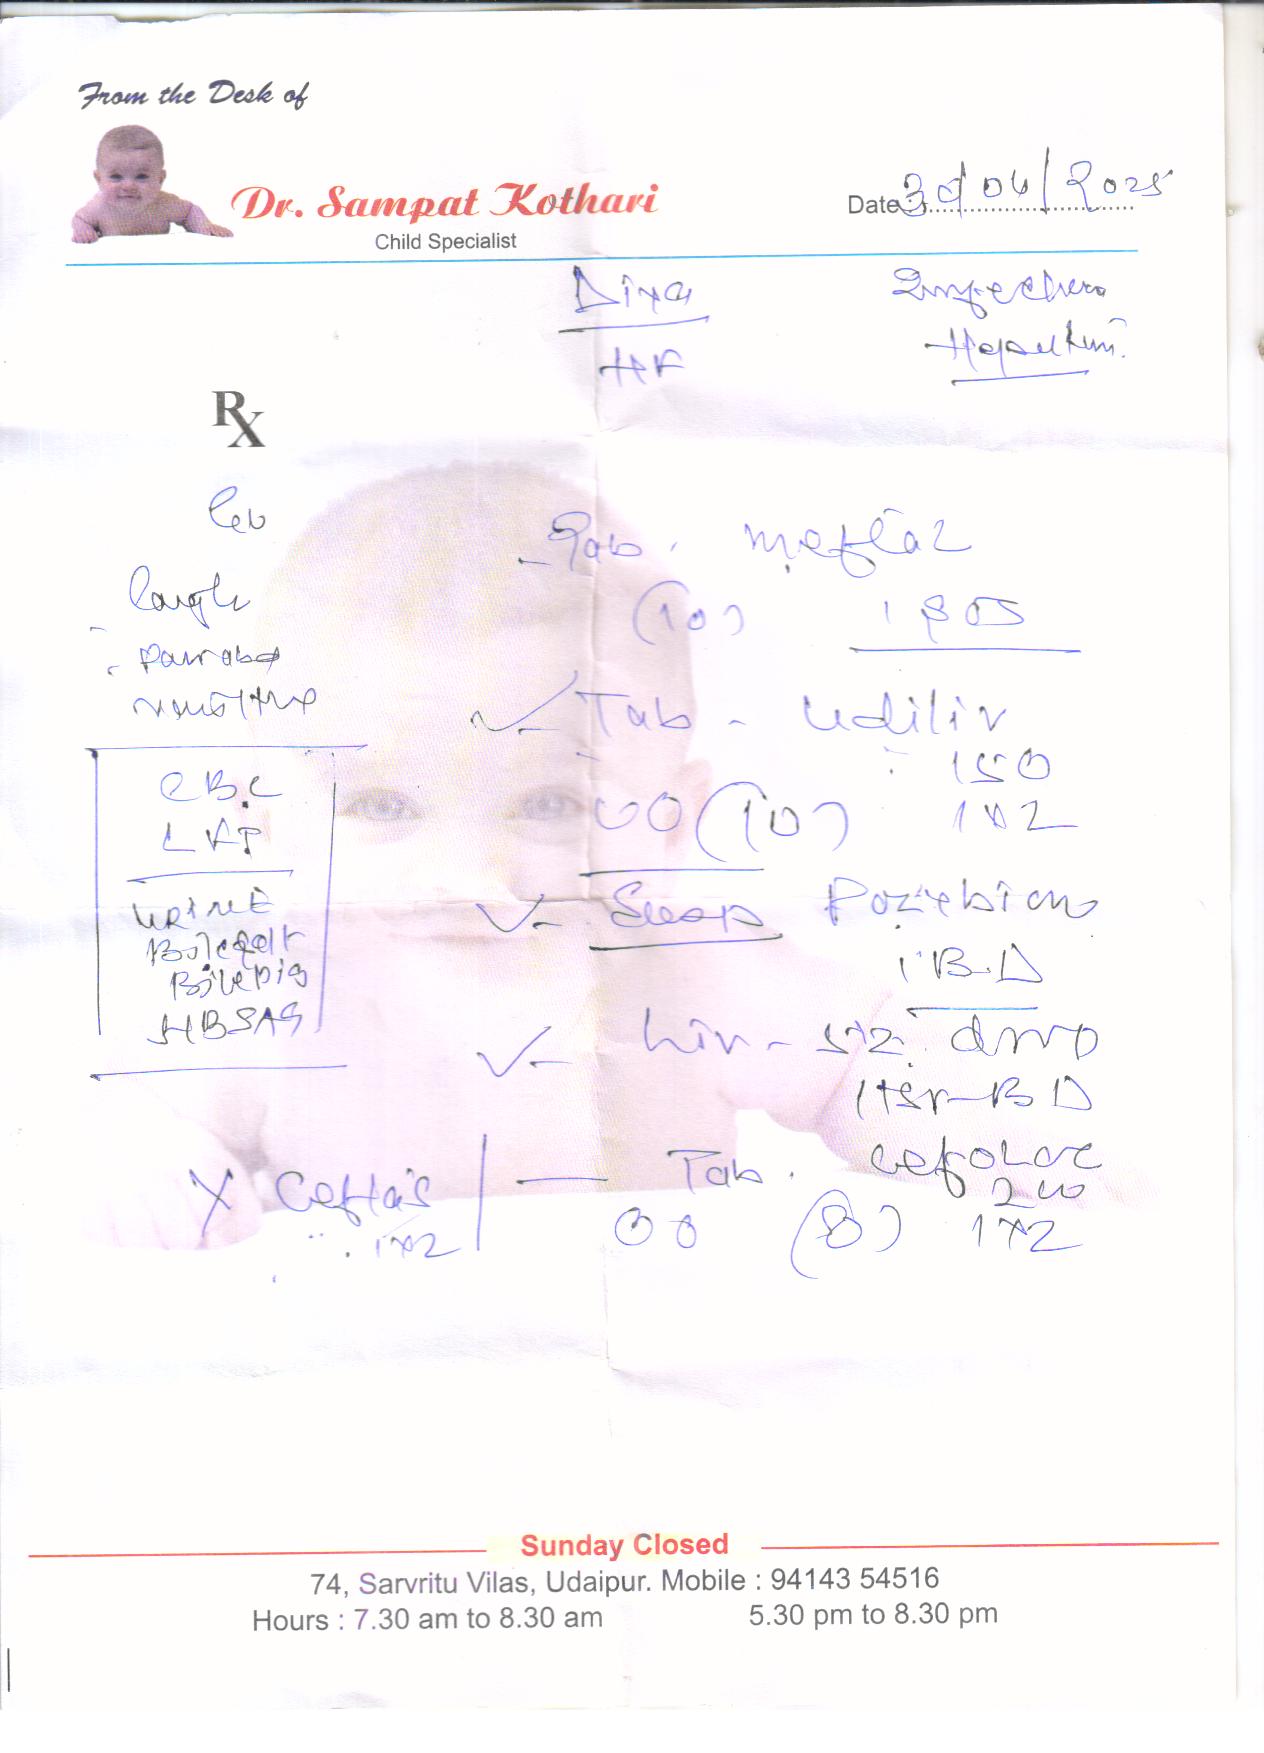 From the Desk of
Dr. Sampat Kothari
Child Specialist
Date: 30/04/2025
Diya
Infective
Hepatitis
Rx
Tab. meftal
(10) 1 SOS
Cough
Pain abd
vomiting
Tab - Udiliv
150
(10) 1x2
CBC
LFT
URINE
Bile salt
Bile pig
HBSAG
Syp
1 BD
Liv-52 drop
1 tsf-BD
X Ceftas
1x2
Tab.
200
(8) 1x2
Sunday Closed
74, Sarvritu Vilas, Udaipur. Mobile : 94143 54516
Hours : 7.30 am to 8.30 am 5.30 pm to 8.30 pm